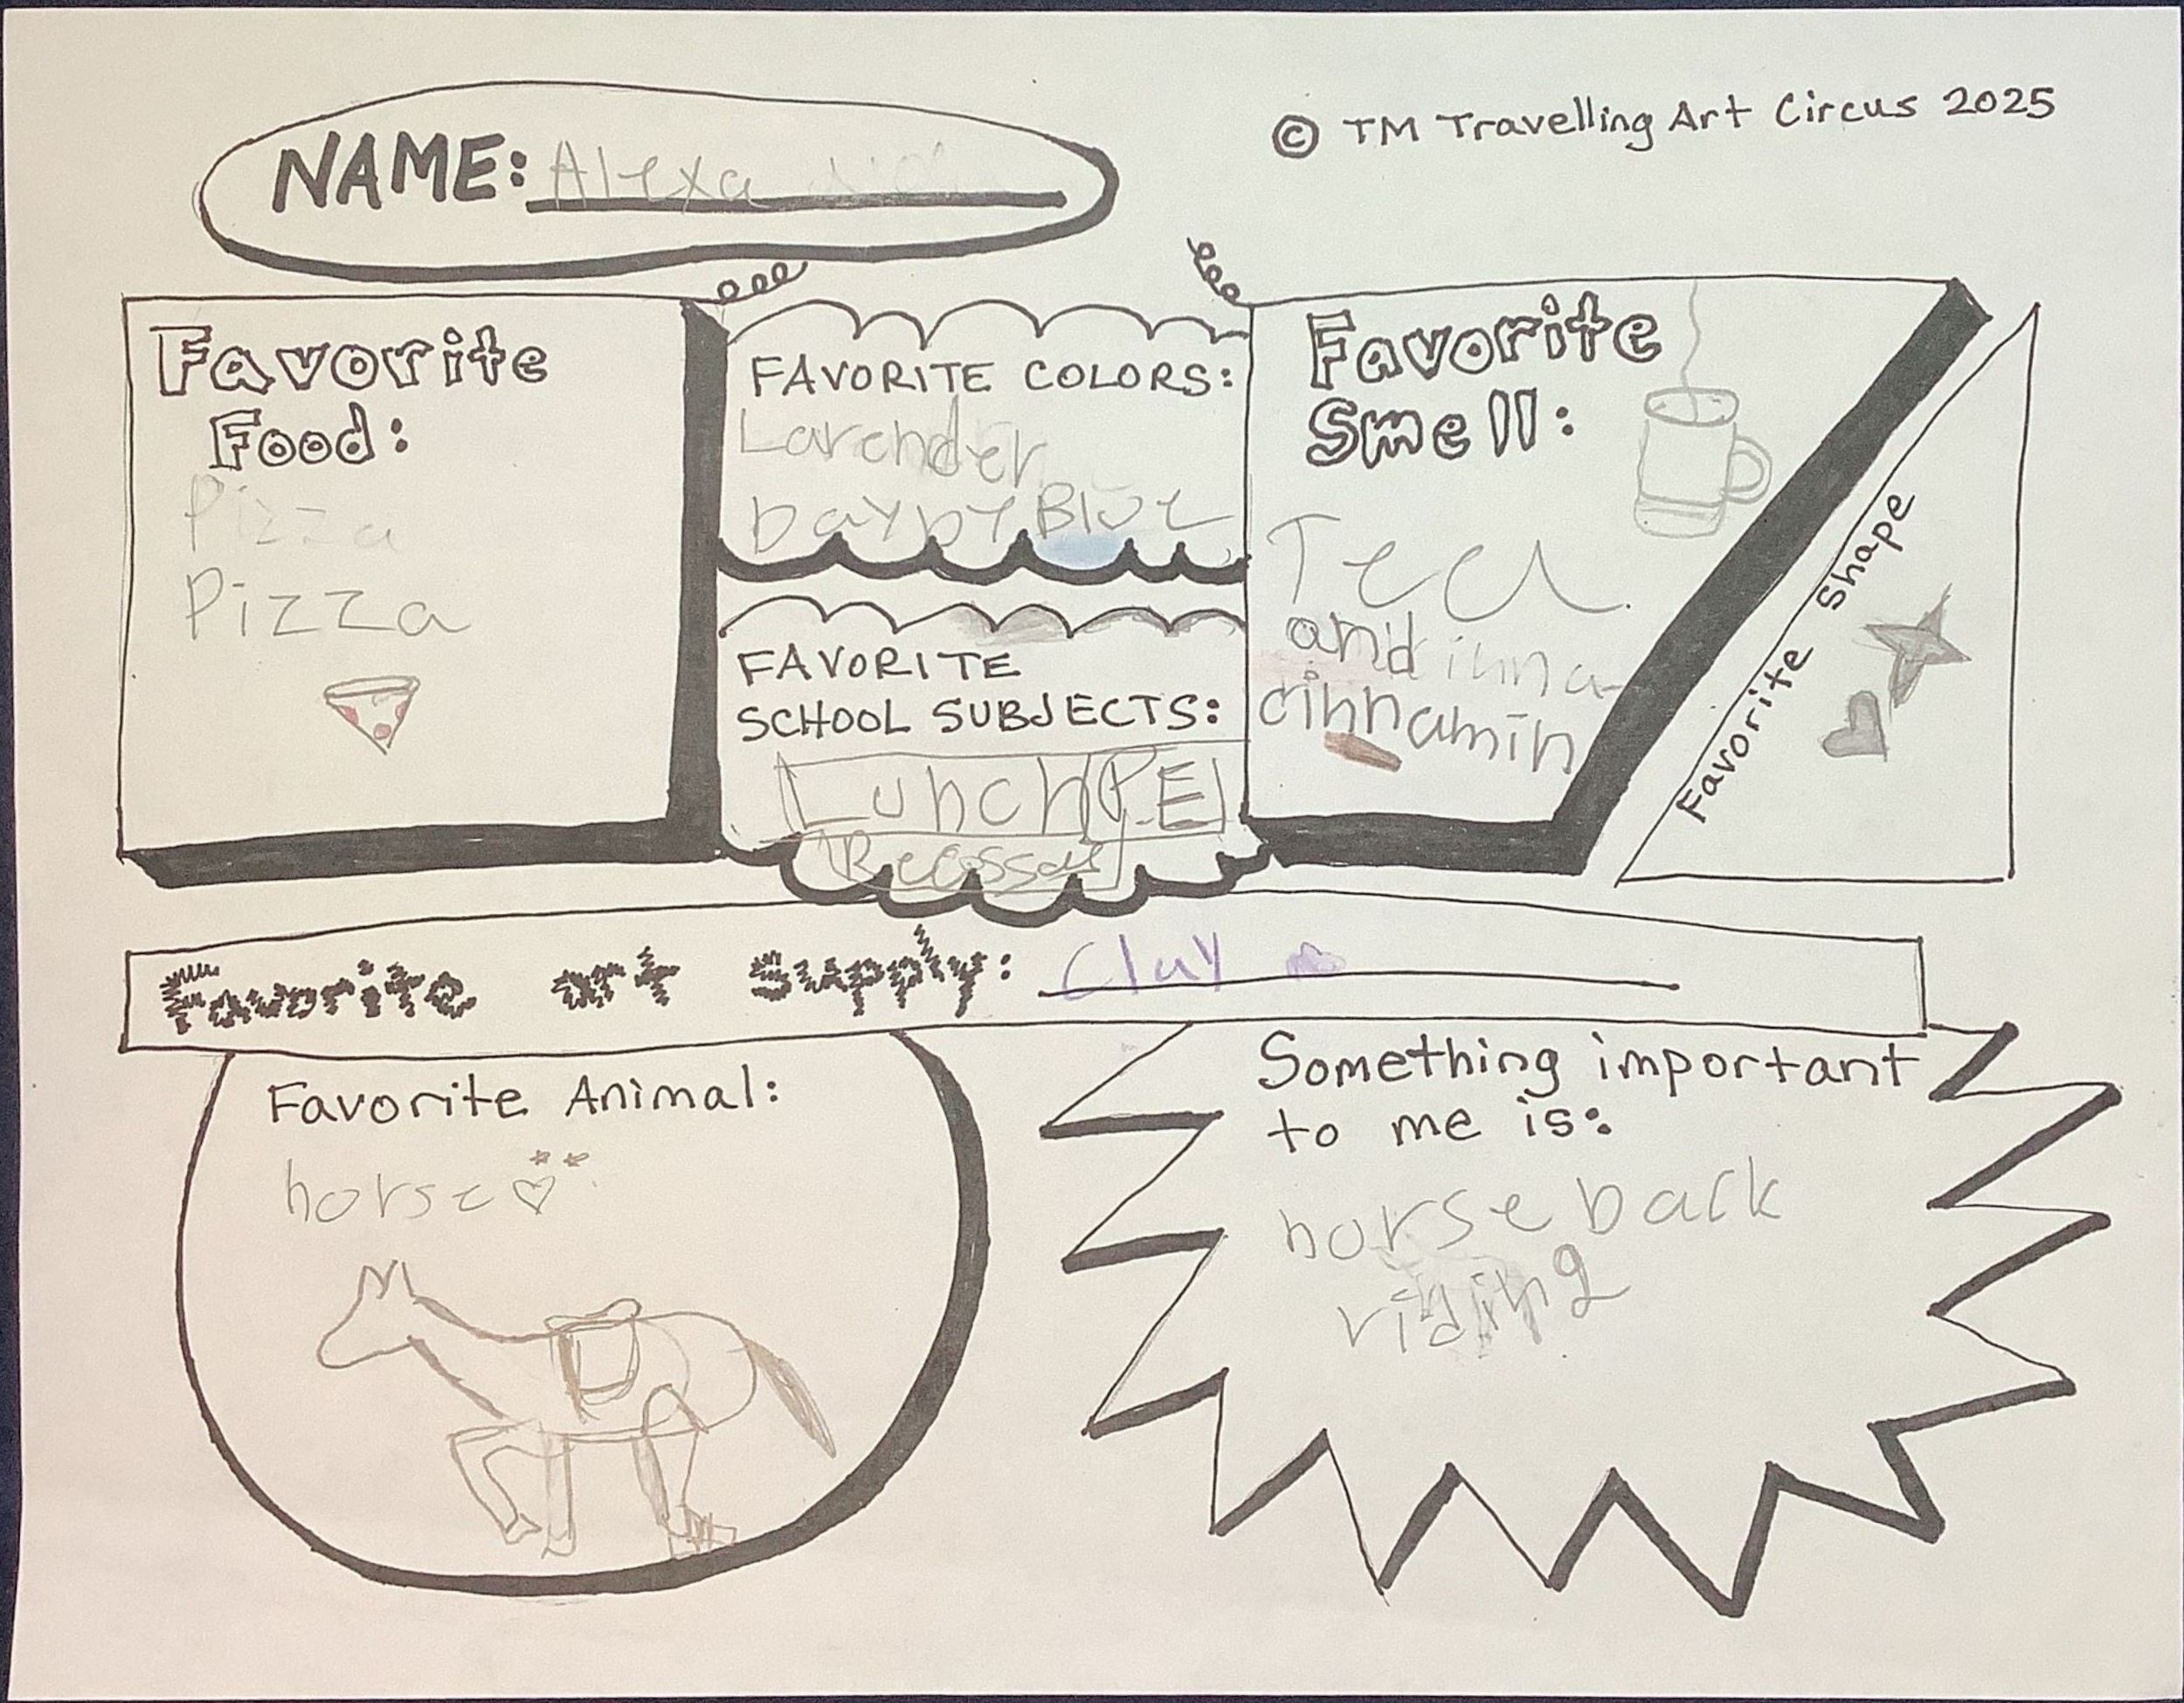 © TM Travelling Art Circus 2025
NAME: Alexa
Favorite
Food:
Pizza
Pizza
FAVORITE COLORS:
Lavender
baypy Blue
FAVORITE
SCHOOL SUBJECTS:
Lunch P.E
Favorite
Smell:
Tea
and inna
cinnamin
Favorite Shape
Favorite art Supply: Clay
Favorite Animal:
horse
Something important
to me is:
horse back
riding